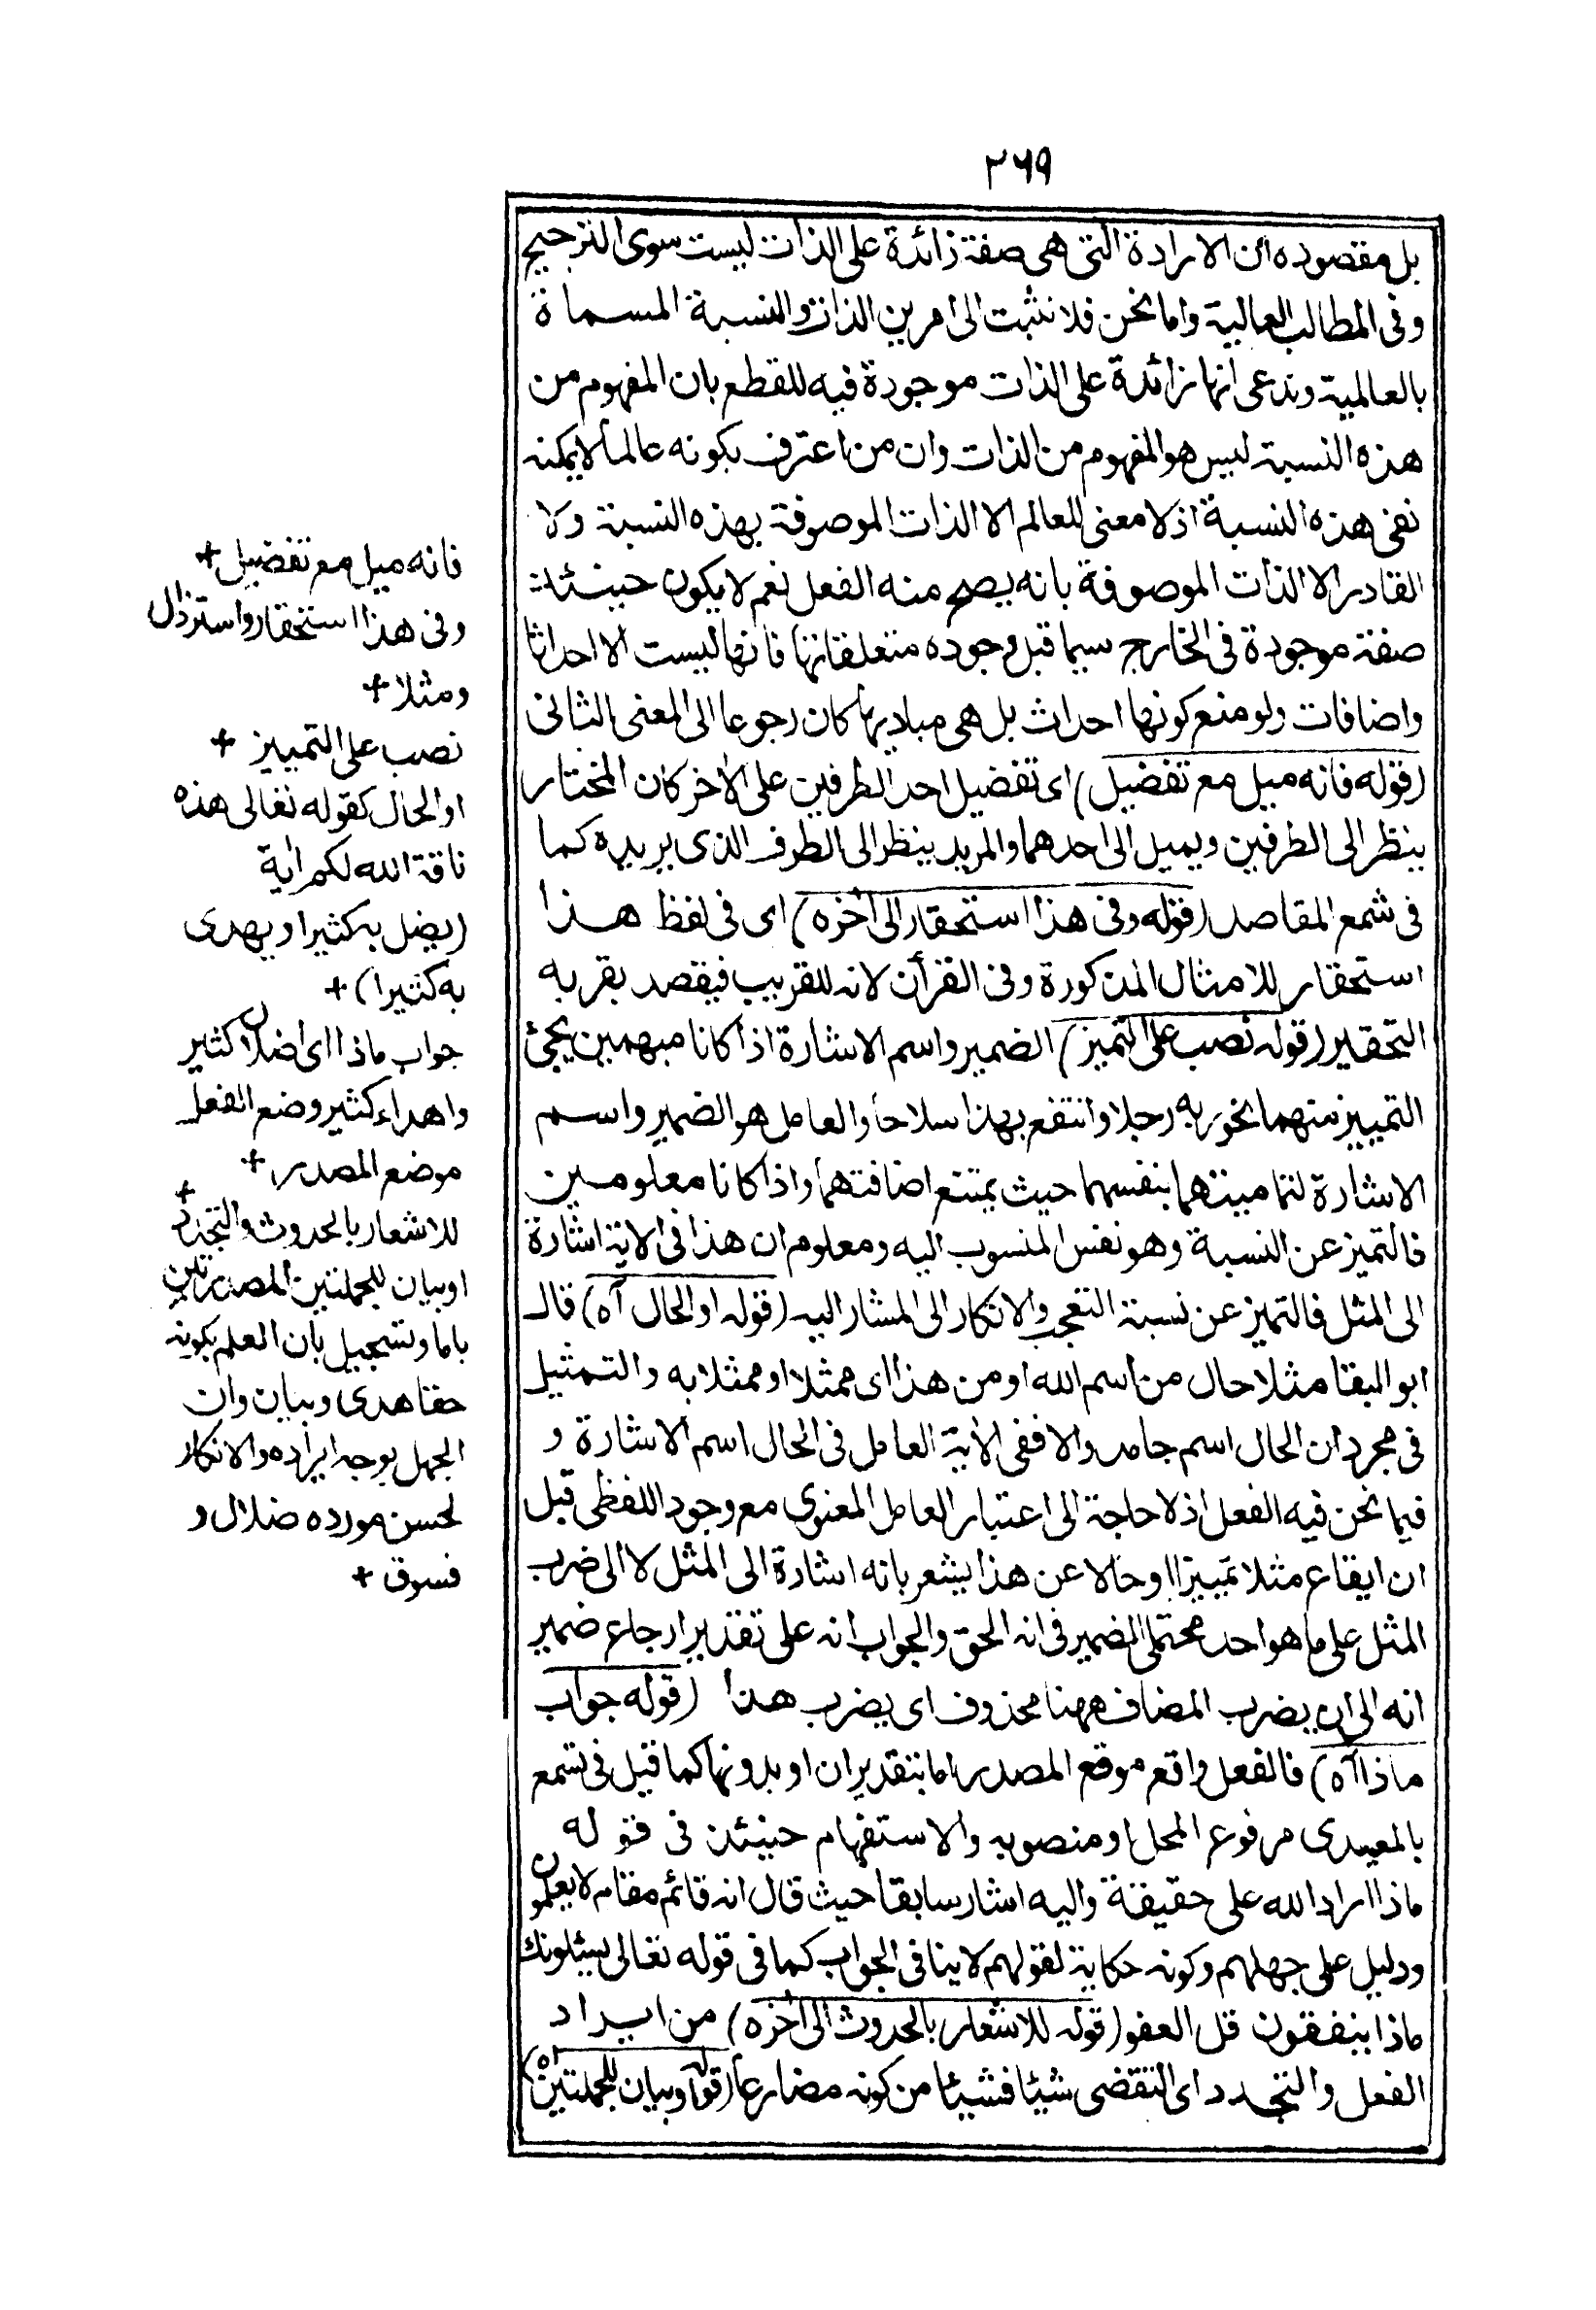 ٢٦٩
بل مقصوده ان الارادة التى هى صفة زائدة على الذات ليست سوى الترجيح
وفى المطالب العالية واما نحن فلا نثبت الى امرين الذات والنسبة المسماة
بالعالمية وندعى انها زائدة على الذات موجودة فيه للقطع بان المفهوم من
هذه النسبة ليس هو المفهوم من الذات وان من اعترف بكونه عالما لا يمكنه
نفى هذه النسبة اذ لا معنى للعالم الا الذات الموصوفة بهذه النسبة ولا
القادر الا الذات الموصوفة بانه يصح منه الفعل نعم لا يكون حينئذ
صفة موجودة فى الخارج سيما قبل وجوده متعلقاتها فانها ليست الا احداثا
واضافات ولو منع كونها احداث بل هى مباديها كان رجوعا الى المعنى الثانى
(قوله فانه ميل مع تفضيل) اى تفضيل احد الطرفين على الاخر كان المختار
ينظر الى الطرفين ويميل الى احدهما والمريد ينظر الى الطرف الذى يريده كما
فى شمع المقاصد (قوله وفى هذا استحقار الى اخره) اى فى لفظ هذا
استحقار للامثال المذكورة وفى القرأن لانه للقريب فيقصد بقربه
التحقير (قوله نصب على التميز) الضمير واسم الاشارة اذا كانا مبهمين يجئ
التمييز منهما نحو ربه رجلا وانتفع بهذا سلاحا والعامل هو الضمير واسم
الاشارة لتماميتهما بنفسهما حيث يمتنع اضافتهما واذا كانا معلومين
فالتميز عن النسبة وهو نفس المنسوب اليه ومعلوم ان هذا فى الاية اشارة
الى المثل فالتميز عن نسبة التعجب والانكار الى المشار اليه (قوله او الحال آه) قال
ابو البقا مثلا حال من اسم الله او من هذا اى ممثلا او ممثلا به والتمثيل
فى مجرد ان الحال اسم جامد والا ففى الأية العامل فى الحال اسم الاشارة و
فيما نحن فيه الفعل اذ لا حاجة الى اعتبار العامل المعنوى مع وجود اللفظى قيل
ان ايقاع مثلا تمييزا او حالا عن هذا يشعر بانه اشارة الى المثل لا الى ضرب
المثل على ما هو احد محتملى الضمير فى انه الحق والجواب انه على تقدير ارجاع ضمير
انه الى ان يضرب المضاف ههنا محذوف اى يضرب هذا (قوله جواب
ماذا آه) فالفعل واقع موقع المصدر اما بتقدير ان او بدونها كما قيل فى تسمع
بالمعيدى مرفوع المحل او منصوبه والاستفهام حينئذ فى قوله
ماذا اراد الله على حقيقة واليه اشار سابقا حيث قال انه قائم مقام لا يعلمون
ودليل على جهلهم وكونه حكاية لقولهم لا ينافى الجواب كما فى قوله تعالى يسئلونك
ماذا ينفقون قل العفو (قوله للاشعار بالحدوث الى اخره) من ايراد
الفعل والتجدد اى التقضى شيئا فشيئا من كونه مضارعا (قوله وبيان للجملتين آه)
فانه ميل مع تفضيل +
وفى هذا استحقار واسترذال
ومثلا +
نصب على التمييز +
او الحال كقوله تعالى هذه
ناقة الله لكم اية
(يضل به كثيرا ويهدى
به كثيرا) +
جواب ماذا اى اضلال كثير
واهداء كثير وضع الفعل
موضع المصدر +
للاشعار بالحدوث والتجدد +
او بيان للجملتين المصدرتين
باما وتسجيل بان العلم بكونه
حقا هدى وبيان وان
الجهل بوجه ايراده والانكار
لحسن مورده ضلال و
فسوق +